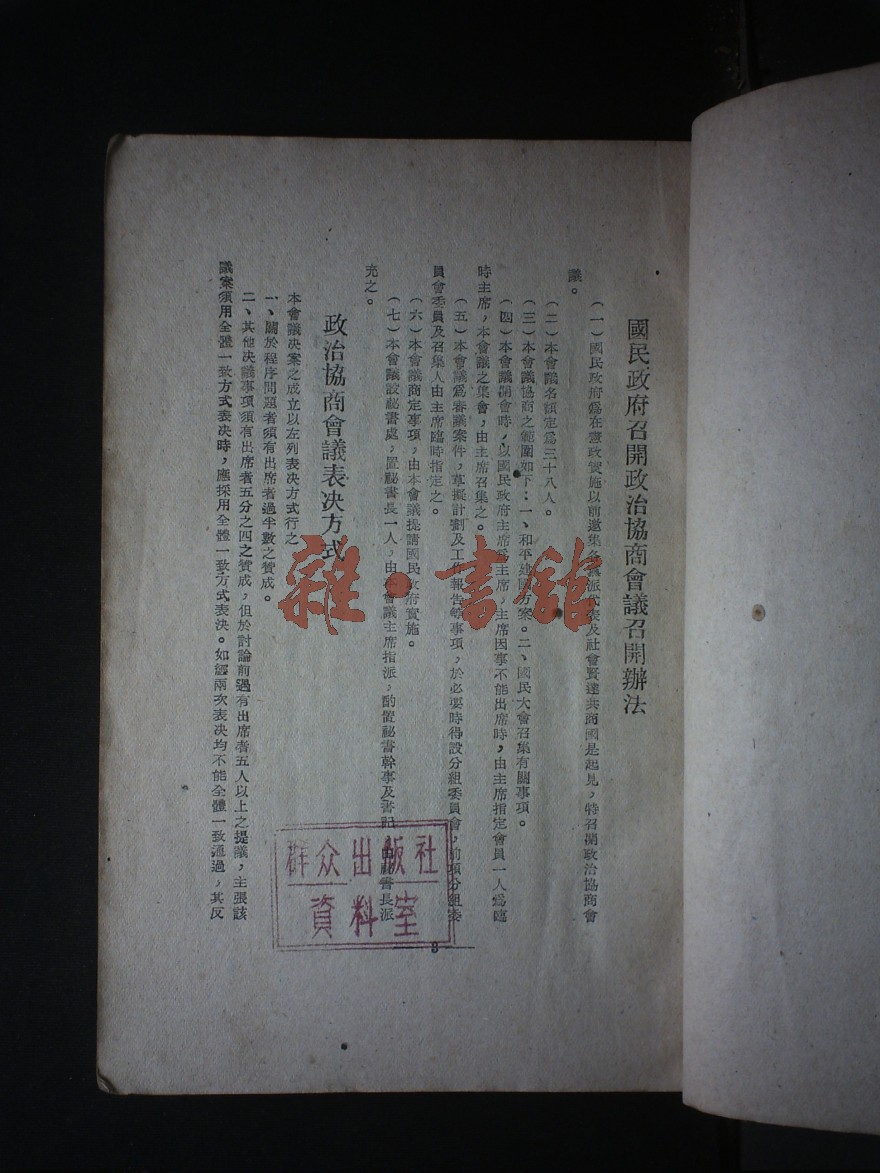 國民政府召開政治協商會議召開辦法
（一）國民政府爲在憲政實施以前邀集各黨派代表及社會賢達共商國是起見，特召開政治協商會
議。
（二）本會議名額定爲三十八人。
（三）本會議協商之範圍如下：一、和平建國方案。二、國民大會召集有關事項。
（四）本會議開會時，以國民政府主席爲主席，主席因事不能出席時，由主席指定會員一人爲臨
時主席，本會議之集會，由主席召集之。
（五）本會議爲審議案件，草擬計劃及工作報告等事項，於必要時得設分組委員會，前項分組委
員會委員及召集人由主席臨時指定之。
（六）本會議商定事項，由本會議提請國民政府實施。
（七）本會議設祕書處，置祕書長一人，由本會議主席指派，酌置祕書幹事及書記，由祕書長派
充之。
政治協商會議表决方式
本會議决案之成立以左列表决方式行之
一、關於程序問題者須有出席者過半數之贊成。
二、其他决議事項須有出席者五分之四之贊成，但於討論前遇有出席者五人以上之提議，主張該
議案須用全體一致方式表决時，應採用全體一致方式表决。如經兩次表决均不能全體一致通過，其反
8
群众出版社
資料室
雜·書館